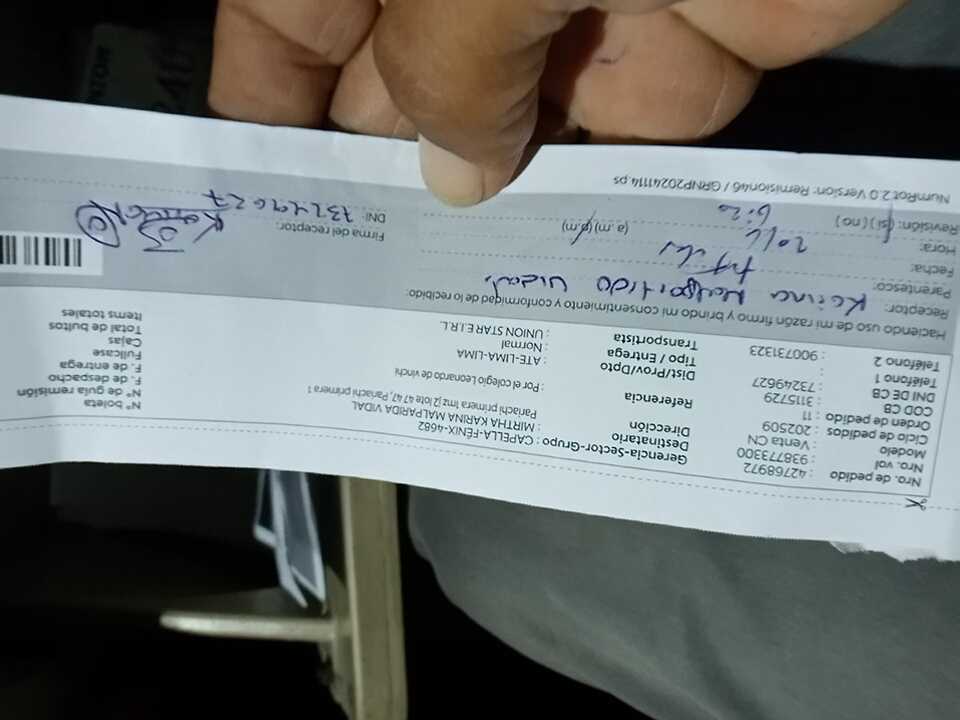 Nro. de pedido : 42768972
Nro. val : 938773300
Modelo : Venta CN
Ciclo de pedidos : 202509
Orden de pedido : 11
COD CB : 3115729
DNI DE CB : 73249627
Teléfono 1 :
Teléfono 2 : 900731323
Gerencia-Sector-Grupo : CAPELLA-FÉNIX-4682
Destinatario : MIRTHA KARINA MALPARIDA VIDAL
Dirección : Pariachi primera lmz l2 lote 47 47, Pariachi primera 1
Referencia : Por el colegio Leonardo de vinchi
Dist/Prov/Dpto : ATE-LIMA-LIMA
Tipo / Entrega : Normal
Transportista : UNION STAR E.I.R.L
Nº boleta
Nº de guía de remisión
F. de despacho
F. de entrega
Fullcase
Cajas
Total de bultos
Items totales
Haciendo uso de mi razón firmo y brindo mi consentimiento y conformidad de lo recibido:
Receptor: Karina Malpartida Vidal
Parentesco:
Fecha:
Hora: (a.m) (p.m)
Revisión: (si) (no)
Firma del receptor:
DNI: 73249627
NumRot 2.0 Version: Remision46 / GRNP20241114.ps